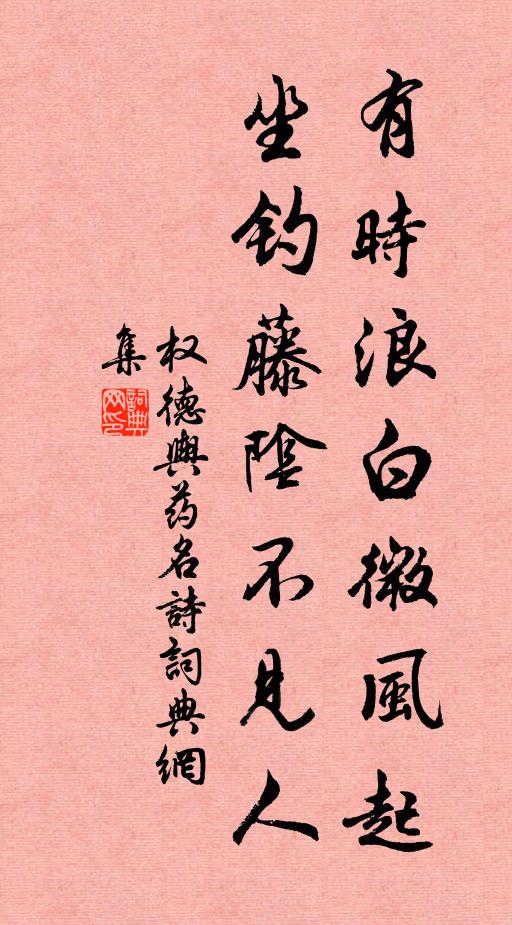 有時浪白微風起
坐釣藤陰不見人
权德輿药名詩詞典網
集
詞典網印